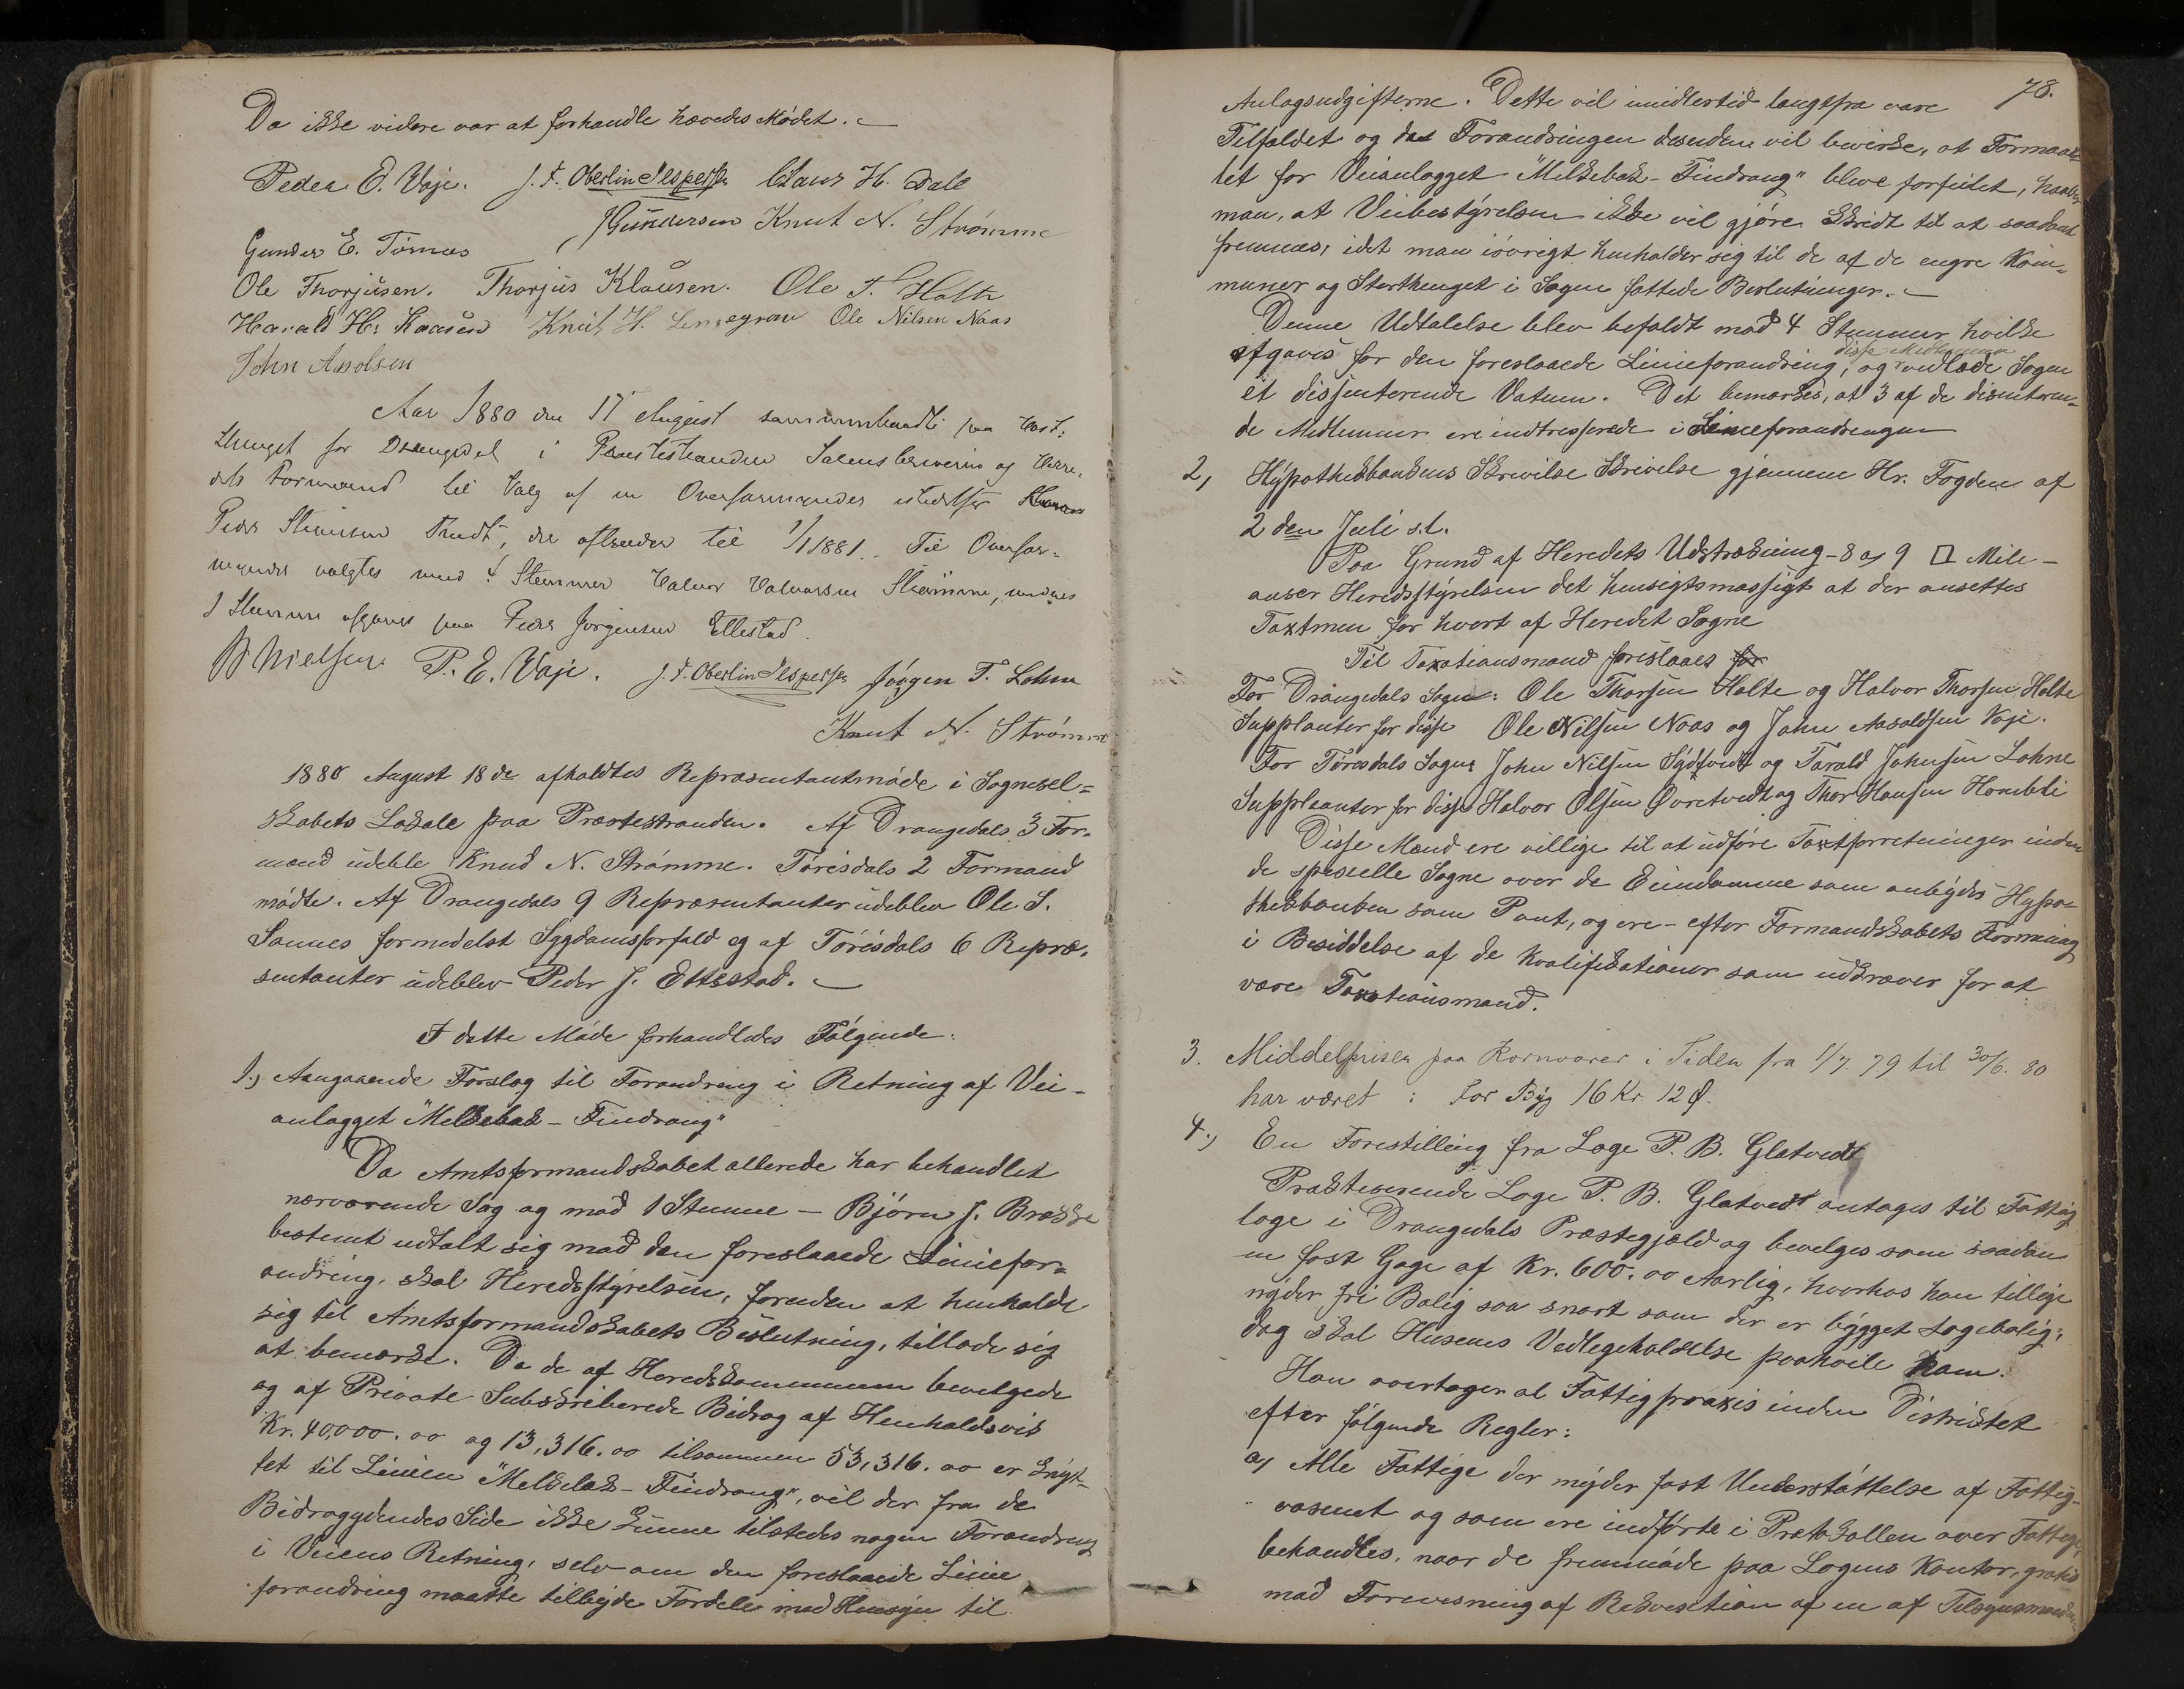 Da ikke videre var at forhandle hævedes Mødet.
Peder E. Vaje. J. F. Oberlin Jespersen Claus H. Dale
J Gundersen Knut N. Strømme
Gunder E. Tørnæs
Ole Thorjusen. Thorjus Klausen. Ole T. Holte
Harald H: Kaasen Knut H. Ole Nilsen Naas
John Asolsen
Aar 1880 den 17 August sammenhandti paa Post:
thinget for Drangedal i Præstestranden Salens beværing og Herre,
dets Formænd til Valg af en Overformynder istedetfor
Peder Steinsen Tvedt, der aftræder til 1/1 1881. Til Overfor-
mynder valgtes med 4 Stemmer Halvor Halvorsen Strømme, medens
1 Stemme afgaves paa Peder Jørgensen Ettestad.
Nielsen. P. E. Vaje. J. F. Oberlin Jespersen Jørgen T. Lohne
Knut N. Strømme
1880 August 18de afholdtes Repræsentantmøde i Sognesel=
skabets Lokale paa Præstestranden. Af Drangedals 3 For-
mænd udeble Knud N. Strømme. Tørisdals 2 Formænd
mødte. Af Drangedals 9 Repræsentanter udeblev Ole S.
Sannes formedelst Sygdomsforfald og af Tørisdals 6 Repræ-
sentanter udeblev Peder J. Ettestad.
I dette Møde forhandledes Følgende:
1., Angaaende Forslag til Forandring i Retning af Vei-
anlægget "Melkebæk - Findrang"
Da Amtsformandskabet allerede har behandlet
nærværende Sag og mod 1 Stemme - Bjørn J. Brække
bestemt udtalt sig mod den foreslaaede Liniefor=
andring, skal Heredsstyrelsen, foruden at henholde
sig til Amtsformandskabets Beslutning, tillade sig
at bemærke. Da de af Heredskommunen bevilgede
og af Private Subskriberede Bidrag af Henholdsvis
Kr. 40,000.00 og 13,316.00 tilsammen 53,316.00 er knyt-
tet til Linien "Melkebæk - Findrang", vil der fra de
Bidragydendes Side ikke kunne tilstedes nogen Forandring
i Veiens Retning, selv om den foreslaaede Linie
forandring maatte tilbyde Fordele med Hensyn til
78.
Anlægsudgifterne. Dette vil imidlertid langtfra være
Tilfældet og da Forandringen desuden vil bevirke, at Formaa-
let for Veianlægget "Melkebæk - Findrang" bleve forfeilet, haaber
man, at Veibestyrelsen ikke vil gjøre Skridt til at saadant
fremmes, idet man iøvrigt henholder sig til de af de engre Kom-
muner og Storthinget i Sagen fattede Beslutninger.
Denne Udtalelse blev befaldt mod 4 Stemmer hvilke
disse Medlemmer
afgaves for den foreslaaede Linieforandring, og vedlade Sagen
et dissenterende Votum. Det bemærkes, at 3 af de disenteren-
de Medlemmer ere indtresserede i Linieforandringen
2, Hypothekbankens Skrivelse Skrivelse gjennem Hr. Fogden af
2den Juli s.l.
Paa Grund af Heredets Udstrækning - 8 a 9 □ Mile -
anser Heredsstyrelsen det hensigtsmæssigt at der ansettes
Taxtmen for hvert af Heredet Sogne
Til Taxationsmænd foreslaaes for
For Drangedals Sogn: Ole Thorsen Holte og Halvor Thorsen Holte
Supplanter for disse Ole Nilsen Naas og John Aasoldsen Vaje.
For Tørisdals Sogn: John Nilsen Sydtvedt og Tarald Johnsen Lohne
Suppleanter for disse Halvor Olsen Øvretvedt og Thor Hansen Hombeli
Disse Mænd ere villige til at udføre Taxtforretninger inden
de spesielle Sogne over de Eiendomme som anbydes Hypo-
thekbanken som Pant, og ere - efter Formandskabets Formening
i Besiddelse af de Kvalifikationer som udkræver for at
være Taxationsmænd.
3. Middelprisen paa Kornvarer i Tiden fra 1/7 79 til 30/6. 80
har været : For Byg 16 Kr 12 Ø.
4., En Forestilling fra Læge P. B. Glatvedt
Prakticerende Læge P. B. Glatvedt antages til Fattig
læge i Drangedals Præstegjæld og bevilges som saadan
en fast Gage af Kr. 600.00 Aarlig, hvorhos han tillige
nyder fri Bolig saa snart som der er bygget Lægebolig;
dog skal Husenes Vedlegeholdelse paahvile ham.
Han overtager al Fattigpraxis inden Distriktet
efter følgende Regler:
a, Alle Fattige der nyder fast Understøttelse af Fattig-
væsenet og som ere indførte i Protokollen over Fattige,
behandles, naar de fremmøde paa Lægens Kontor, gratis
mod Forevisning af Rekvesition af en af Tilsynsmænd